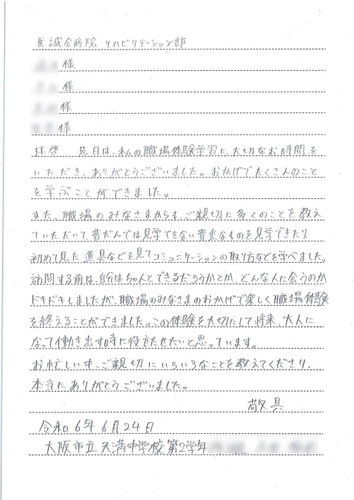 誠会病院 リハビリテーション部
様
様
様
様
拝啓 先日は、私の職場体験学習に、大切なお時間を
いただき、ありがとうございました。おかげでたくさんのこと
を学ぶことができました。
また、職場のみなさまからも、ご親切に多くのことを教え
ていただいて、普だんでは見学できない貴重なものを見学できたり
初めて見た道具などを見てコミュニケーションの取り方などを学べました。
訪問する前は、自分はちゃんとできるだろうかとか、どんな人に会うのか
ドキドキしましたが、職場のみなさまのおかげで楽しく職場体験
を終えることができました。この体験を大切にして将来、大人に
なって働き出す時に役立たせたいと思っています。
お忙しい中、ご親切にいろいろなことを教えてくださり、
本当にありがとうございました。
敬具
令和6年6月24日
大阪市立天満中学校第2学年